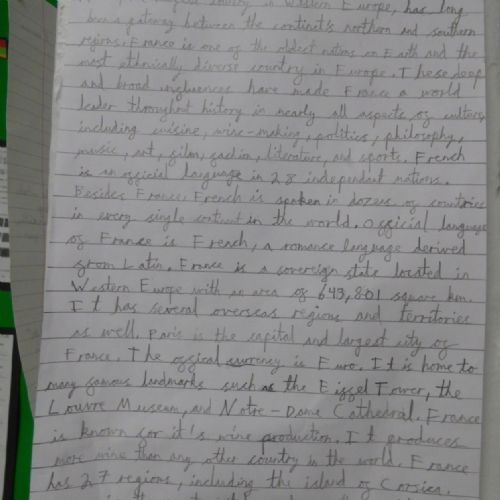 country in Western Europe, has long
been a gateway between the continent's northern and southern
regions. France is one of the oldest nations on Earth and the
most ethnically diverse country in Europe. These deep
and broad influences have made France a world
leader throughout history in nearly all aspects of culture,
including cuisine, wine-making, politics, philosophy,
music, art, film, fashion, literature, and sports. French
is an official language in 28 independent nations.
Besides France, French is spoken in dozens of countries
in every single continent in the world. Official language
of France is French, a romance language derived
from Latin. France is a sovereign state located in
Western Europe with an area of 643,801 square km.
It has several overseas regions and territories
as well. Paris is the capital and largest city of
France. The offical currency is Euro. It is home to
many famous landmarks such as the Eiffel Tower, the
Louvre Museum, and Notre-Dame Cathedral. France
is known for it's wine production. It produces
more wine than any other country in the world. France
has 27 regions, including the island of Corsica.